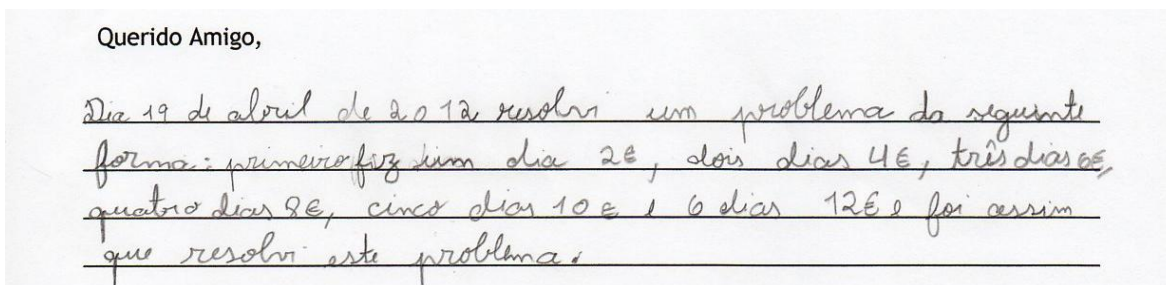 Querido Amigo,
Dia 19 de abril de 2012 resolvi um problema da seguinte
forma: primeiro fiz um dia 2€, dois dias 4€, três dias 6€,
quatro dias 8€, cinco dias 10€ e 6 dias 12€ e foi assim
que resolvi este problema.